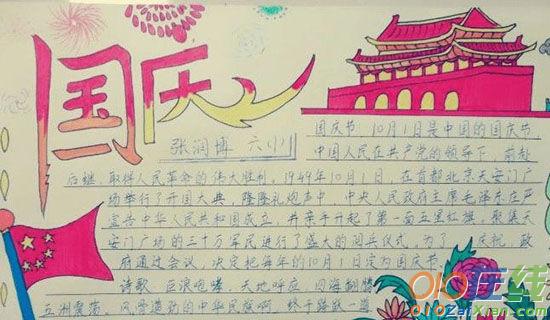 国庆
张润博 六(1)
国庆节,10月1日是中国的国庆节。
中国人民在共产党的领导下,前赴
后继,取得人民革命的伟大胜利,1949年10月1日,在首都北京天安门广
场举行了开国大典,隆隆礼炮声中,中央人民政府主席毛泽东庄严
宣告中华人民共和国成立,并亲手升起了第一面五星红旗,聚集天
安门广场的三十万军民进行了盛大的阅兵仪式,为了 庆祝,政
府通过会议,决定把每年的10月1日定为国庆节。
诗歌,巨浪咆哮,天地呼应,四海翻腾
五洲震荡,风雷激励的中华民族啊,终于踏
在线
ZaiXian.com